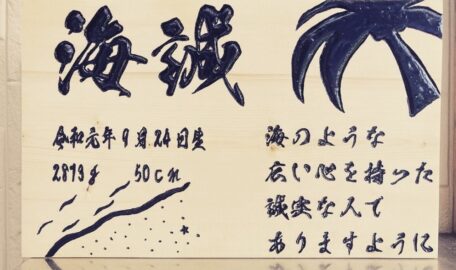 海誠
令和元年9月24日生
2873g 50cm
海のような
広い心を持った
誠実な人で
ありますように